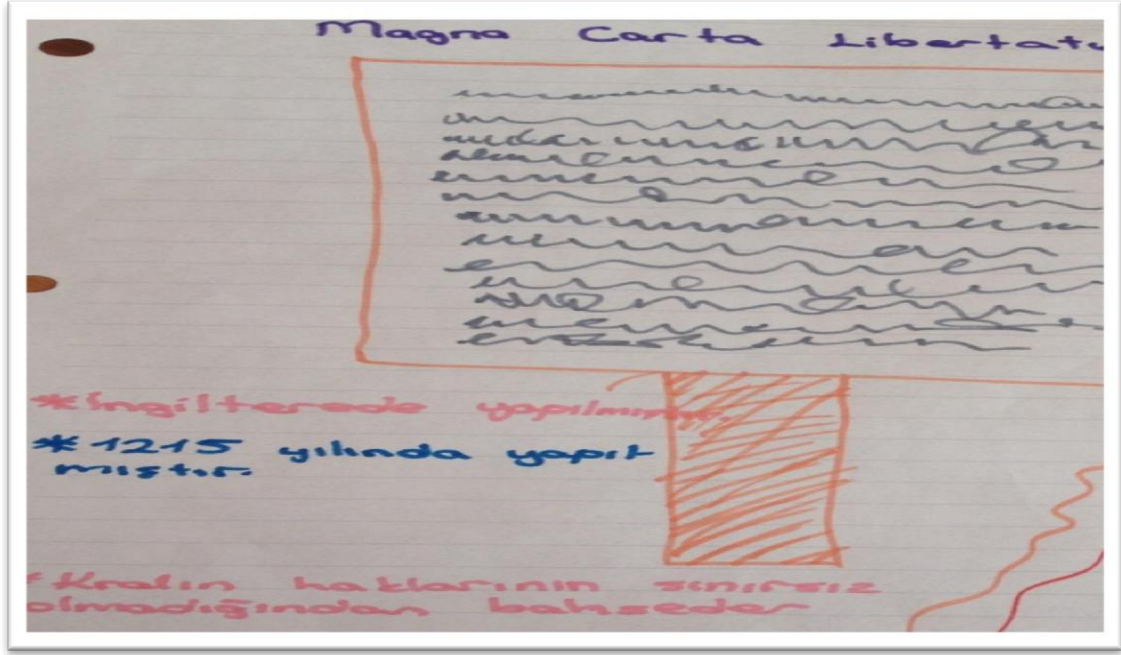 Magna Carta Libertatu
*İngilterede yapılmıştır.
*1215 yılında yapıl
mıştır.
*Kralın haklarının sınırsız
olmadığından bahseder